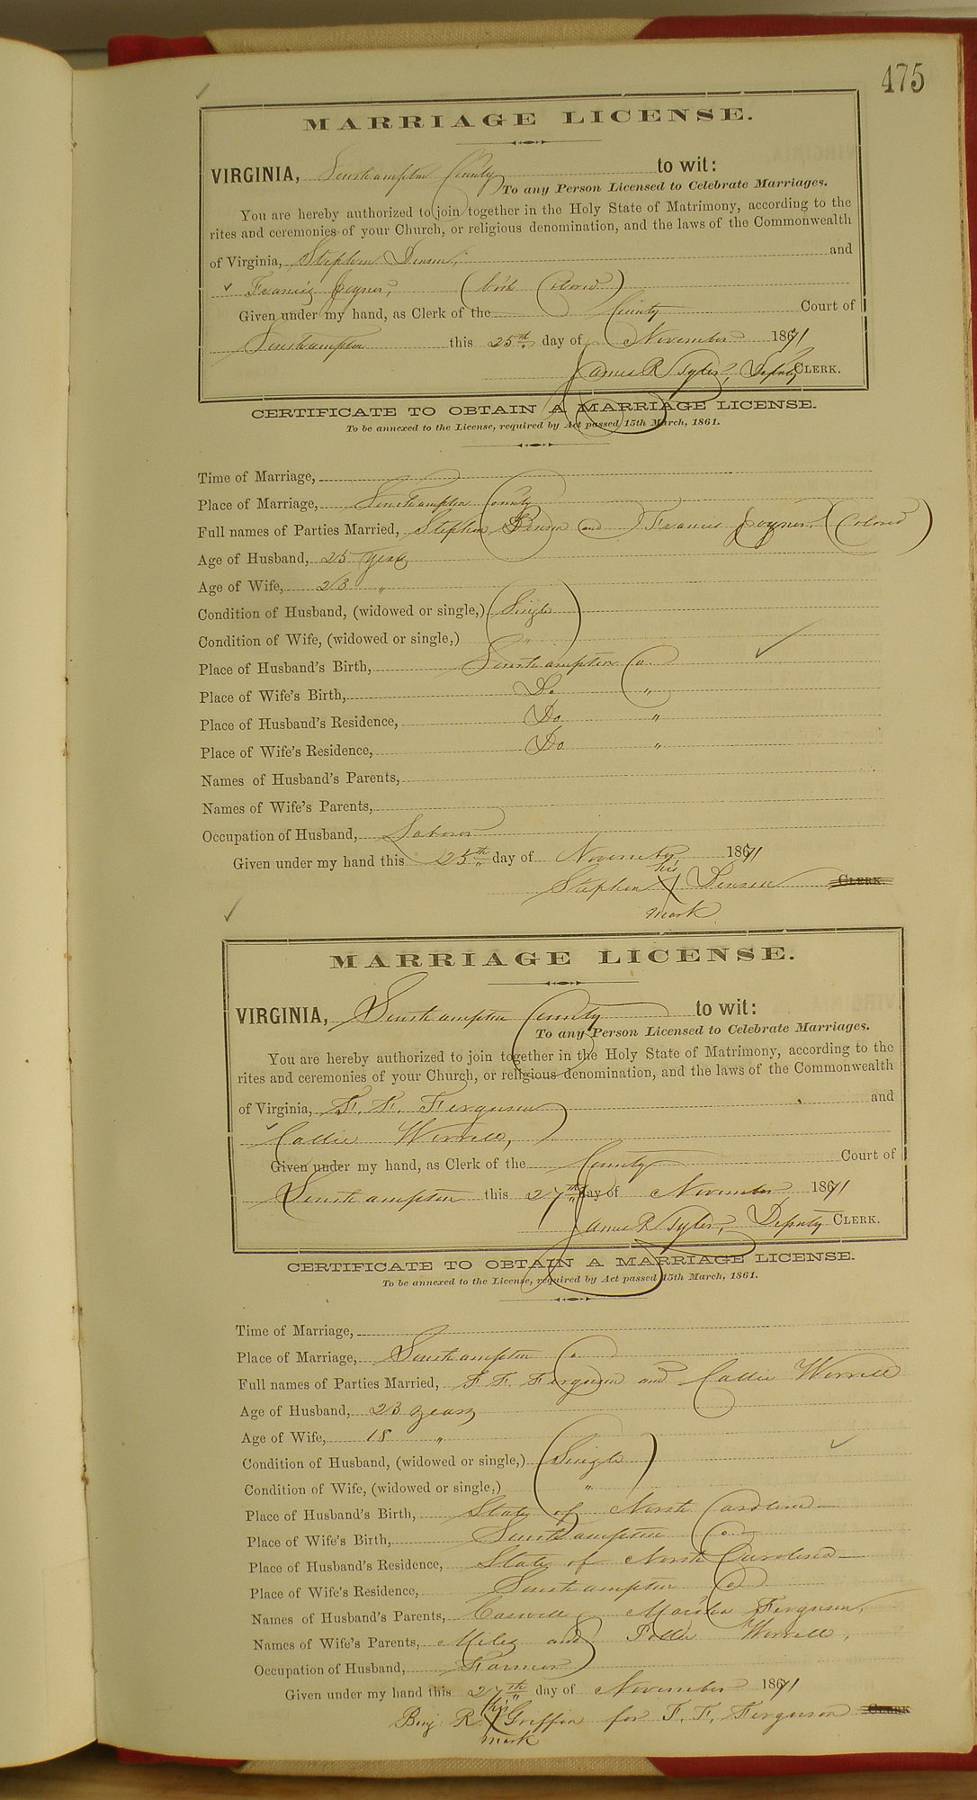 475
MARRIAGE LICENSE.
VIRGINIA, Southampton County to wit:
To any Person Licensed to Celebrate Marriages.
You are hereby authorized to join together in the Holy State of Matrimony, according to the
rites and ceremonies of your Church, or religious denomination, and the laws of the Commonwealth
of Virginia, Stephen Denson, and
Francis Joyner, (both Colored)
Given under my hand, as Clerk of the County Court of
Southampton this 25th day of November 1871
James R Tyler, Deputy CLERK.
CERTIFICATE TO OBTAIN A MARRIAGE LICENSE.
To be annexed to the License, required by Act passed 15th March, 1861.
Time of Marriage,
Place of Marriage, Southampton County
Full names of Parties Married, Stephen Denson and Francis Joyner (Colored)
Age of Husband, 25 Years
Age of Wife, 23 "
Condition of Husband, (widowed or single,) Single
Condition of Wife, (widowed or single,) "
Place of Husband's Birth, Southampton Co.
Place of Wife's Birth, Do "
Place of Husband's Residence, Do "
Place of Wife's Residence, Do "
Names of Husband's Parents,
Names of Wife's Parents,
Occupation of Husband, Laborer
Given under my hand this 25th day of November 1871
his
Stephen X Denson CLERK.
mark
MARRIAGE LICENSE.
VIRGINIA, Southampton County to wit:
To any Person Licensed to Celebrate Marriages.
You are hereby authorized to join together in the Holy State of Matrimony, according to the
rites and ceremonies of your Church, or religious denomination, and the laws of the Commonwealth
of Virginia, F. F. Ferguson and
Callie Worrell,
Given under my hand, as Clerk of the County Court of
Southampton this 27th day of November 1871
James R Tyler, Deputy CLERK.
CERTIFICATE TO OBTAIN A MARRIAGE LICENSE.
To be annexed to the License, required by Act passed 15th March, 1861.
Time of Marriage,
Place of Marriage, Southampton Co.
Full names of Parties Married, F. F. Ferguson and Callie Worrell
Age of Husband, 23 years
Age of Wife, 18 "
Condition of Husband, (widowed or single,) Single
Condition of Wife, (widowed or single,) "
Place of Husband's Birth, State of North Carolina
Place of Wife's Birth, Southampton Co.
Place of Husband's Residence, State of North Carolina
Place of Wife's Residence, Southampton Co
Names of Husband's Parents, Ferguson,
Names of Wife's Parents, Miles and Worrell,
Occupation of Husband, Farmer
Given under my hand this 27th day of November 1871
his
Benj R. X Griffin for F. F. Ferguson CLERK
mark